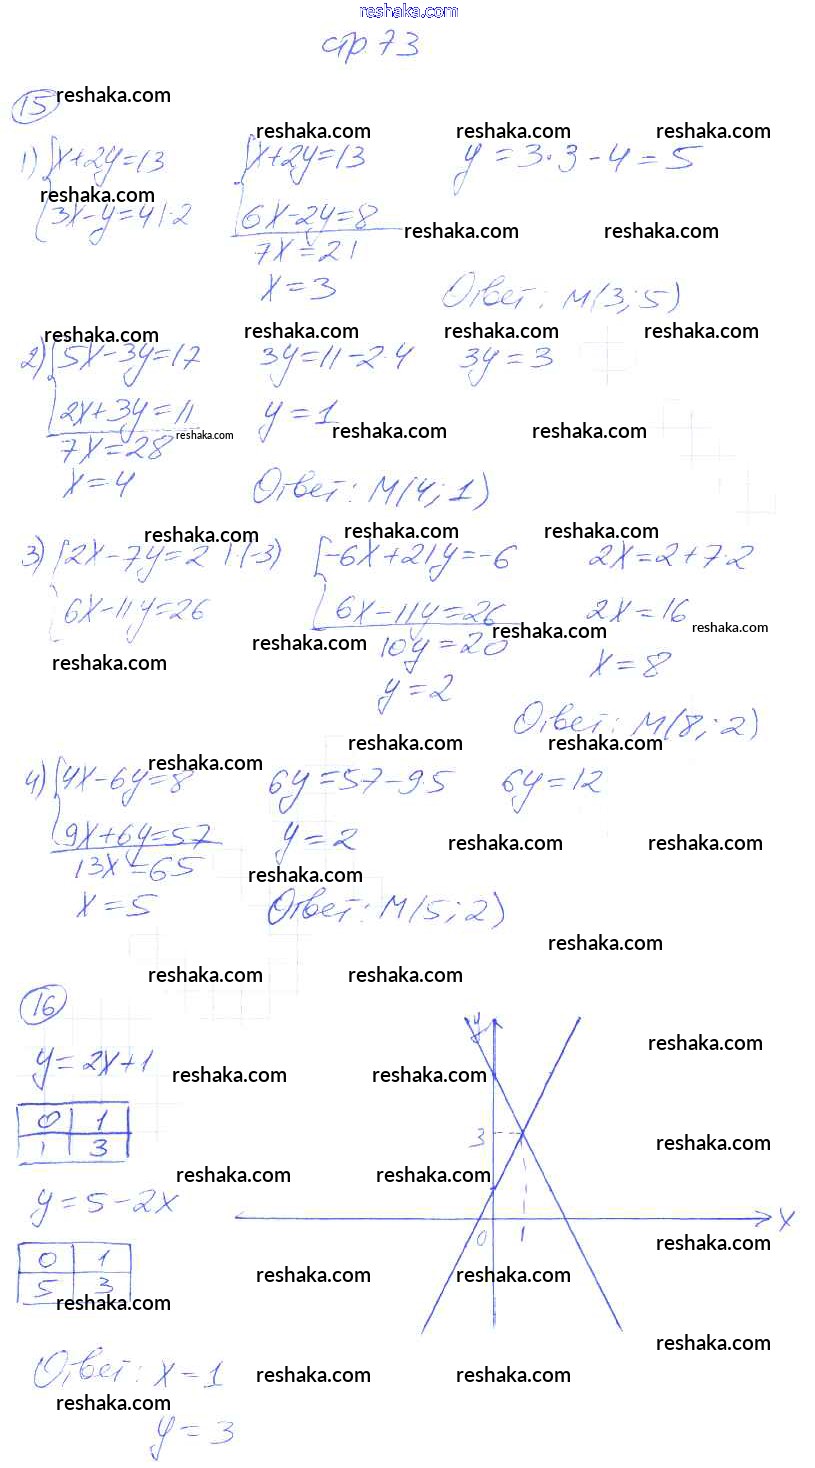 reshaka.com
стр. 73
15 reshaka.com
reshaka.com reshaka.com reshaka.com
1) { x+2y=13 { x+2y=13 y = 3·3 - 4 = 5
reshaka.com
3x-y=4 |·2 6x-2y=8 reshaka.com reshaka.com
7x=21
x=3 Ответ: M(3; 5)
reshaka.com reshaka.com reshaka.com reshaka.com
2) { 5x-3y=17 3y=11-2·4 3y=3
2x+3y=11 y=1
7x=28 reshaka.com reshaka.com reshaka.com
x=4 Ответ: M(4; 1)
reshaka.com reshaka.com reshaka.com
3) { 2x-7y=2 |·(-3) { -6x+21y=-6 2x=2+7·2
6x-11y=26 6x-11y=26 2x=16
reshaka.com reshaka.com reshaka.com
10y=20
reshaka.com x=8
y=2
Ответ: M(8; 2)
reshaka.com reshaka.com
reshaka.com
4) { 4x-6y=8 6y=57-9·5 6y=12
9x+6y=57 y=2 reshaka.com reshaka.com
13x=65 reshaka.com
x=5 Ответ: M(5; 2)
reshaka.com
reshaka.com reshaka.com
16
y
reshaka.com
y=2x+1 reshaka.com reshaka.com
0 1
1 3
3 reshaka.com
reshaka.com reshaka.com
y=5-2x
x
0 1
reshaka.com
0 1
5 3
reshaka.com reshaka.com
reshaka.com
reshaka.com
Ответ: x=1 reshaka.com reshaka.com
reshaka.com
y=3